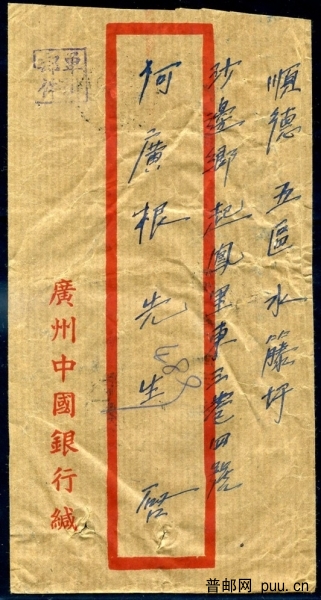 順德 五區水籐圩
沙邊鄉起鳳里東三巷四號
何廣根先生 啓
489
廣州中國銀行緘
軍
郵件
普邮网 puu.cn